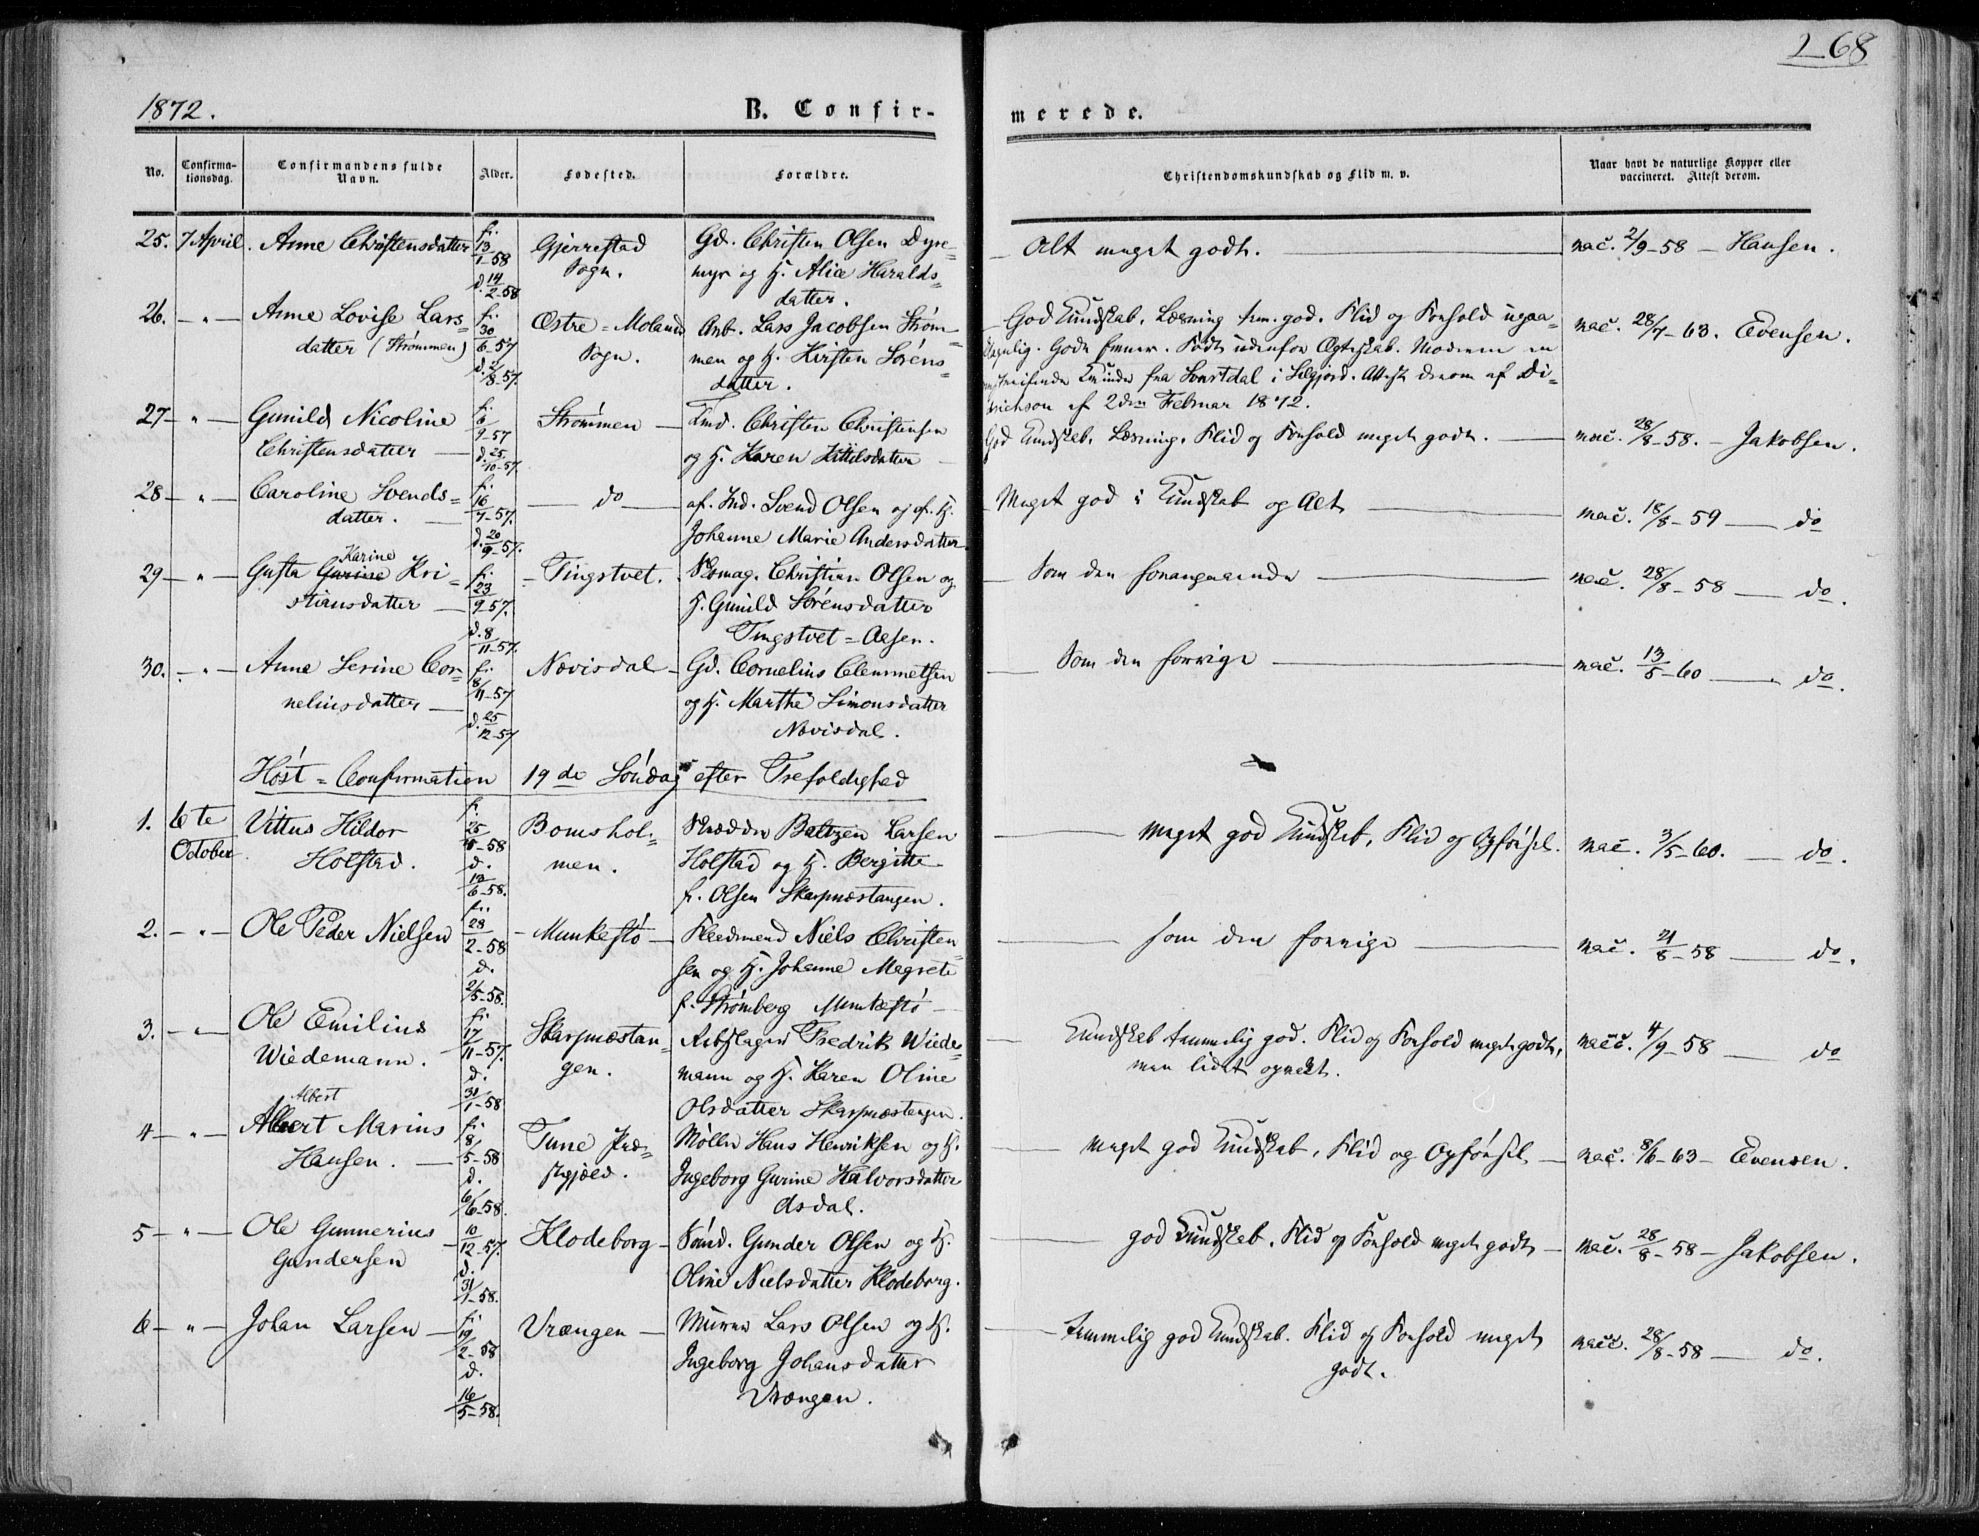 268
1872.
B. Confir-
merede.
No.
Confirma-
tionsdag.
Confirmandens fulde
Navn.
Alder.
Fødested.
Forældre.
Christendomskundskab og Flid m. v.
Naar havt de naturlige Kopper eller
vaccineret. Attest derom.
25. 7 April. Anne Christensdatter f. 13/1-58 d. 14/2-58 Gjerrestad Gd. Christen Olsen Dyre-
Sogn. myr og H. Alice Haralds-
datter.
Alt meget godt. vac. 2/9-58 - Hansen.
26. - " - Anne Lovise Lars- f. 30/6-57 Østre-Molands Arb. Lars Jacobsen Strøm-
datter (Strømmen) d. 2/8-57. Sogn. men og H. Kirsten Sørens-
datter.
God Kundskab. Læsning tem. god. Flid og Forhold upaa-
klagelig. Gode Evner. Født udenfor Ægteskab. Moderen en
Kvinde fra i Siljord. Attest derom af Di-
richson af 2den Februar 1872.
vac. 28/7-63. Evensen.
27 - " - Gunild Nicoline f. 6/9-57 Strømmen Christen Christensen
Christensdatter d. 25/10-57. og H. Karen Kittilsdatter
God Kundskab. Læsning. Flid og Forhold meget godt. vac. 28/8-58. - Jakobsen.
28 - " - Caroline Svends- f. 16/7-57. do af. Ind. Svend Olsen og af. H.
datter. d. 20/9-57. Johanne Marie Andersdatter
Meget god i Kundskab og Alt vac. 18/8-59 - do
Karine
29 - " - Gusta Gurine Kri- f. 23/9-57. Tingstvet. Skomag. Christian Olsen og
stiansdatter d. 8/11-57. H. Gunild Sørensdatter
Tingstvet-Aasen.
Som den foregaaende vac. 28/8-58 - do.
30. - " - Anne Serine Cor- f. 8/11-57 Nævisdal Gd. Cornelius Clemmetsen
neliusdatter d. 25/12-57 og H. Marthe Simonsdatter
Nævisdal.
Som den forrige vac. 13/5-60 - do.
Høst-Confirmation 19de Søndag efter Trefoldighed
1. 6te Vittus Hildor f. 25/-58 Bomshol- Skrædder Baltzen Larsen
October. Holstad. d. 13/6-58. men. Holstad og H. Bergitte
f. Olsen Skarpnæstangen.
meget god Kundskab, Flid og Opførsel. vac. 3/5-60. - do.
2. - " - Ole Peder Nielsen f. 28/2-58 d. 2/5-58. Munkestø Niels Christen-
sen og H. Johanne Magrete
f. Strømberg Munkestø
som den forrige vac. 21/8-58 - do.
3. - " - Ole Emilius f. 17/11-57. Skarpnæstan- Fredrik Wiede-
Wiedemann. d. 31/1-58 gen. mann og H. Karen Oline
Olsdatter Skarpnæstangen.
Kundskab temmelig god. Flid og Forhold meget godt,
men lidet opvakt.
vacc. 4/9-58 - do
Albert
4 - " - Albert Marius f. 8/5-58 Tune Præ- Møller Hans Henriksen og H.
Hansen. d. 6/6-58. stegjæld. Ingeborg Gurine Halvorsdatter
Asdal.
meget god Kundskab, Flid og Opførsel vac. 8/6-63 - Evensen.
5 - " - Ole Gunnerius 10/12-57. Klodeborg Sømd. Gunder Olsen og H.
Gundersen d. 31/1-58. Oline Nielsdatter Klodeborg.
god Kundskab. Flid og Forhold meget godt vac. 28/8-58 - Jakobsen.
6 - " - Johan Larsen f. 19/2-58 Vrængen Murer Lars Olsen og H.
d. 16/5-58. Ingeborg Johansdatter
Vrængen.
temmelig god Kundskab. Flid og Forhold meget
godt.
vacc. 28/8-58 - do.